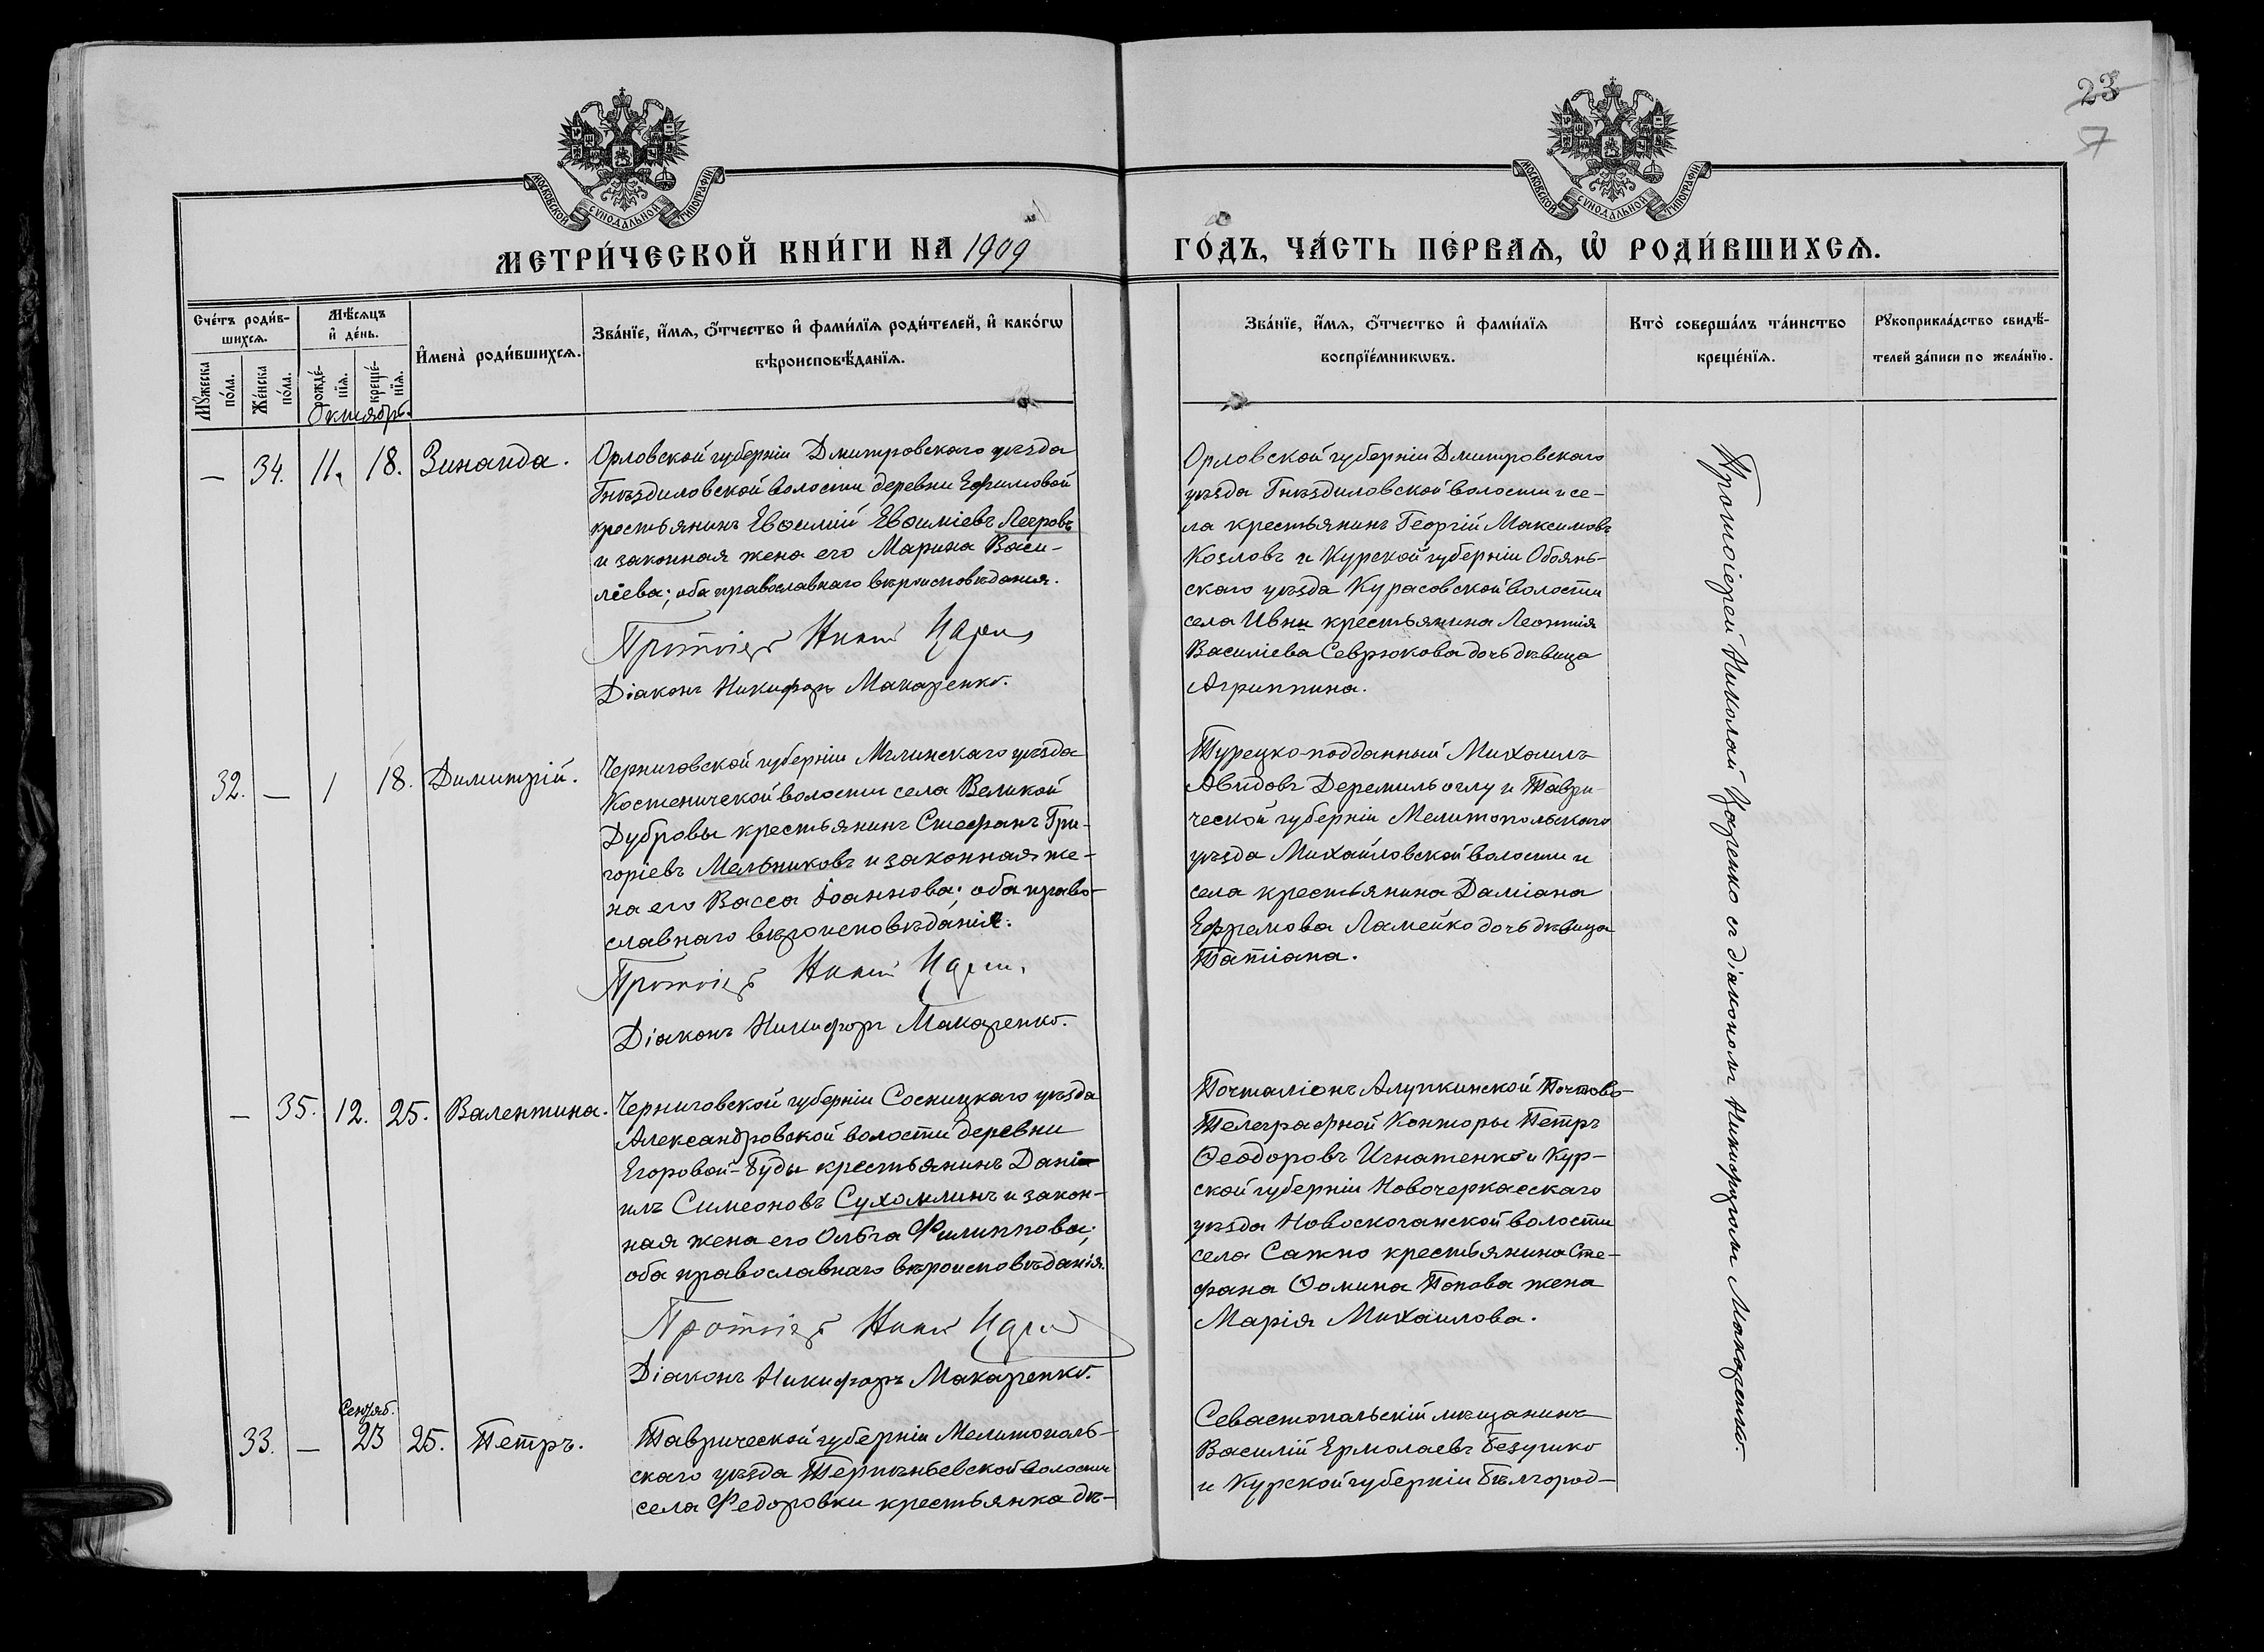 23
57
МОСКОВСКОЙ СѴНОДАЛЬНОЙ ТИПОГРАФІИ
МОСКОВСКОЙ СѴНОДАЛЬНОЙ ТИПОГРАФІИ
МЕТРИ́ЧЕСКОЙ КНИ́ГИ НА 1909
ГО́ДЪ, ЧА́СТЬ ПЕ́РВАѦ, Ѡ҆ РОДИ́ВШИХСѦ.
Сче́тъ роди́в-
шихсѧ.
Мꙋ́жеска по́ла.
Же́нска по́ла.
Мѣ́сѧцъ
и҆ де́нь.
рожде́-нїѧ.
креще́-нїѧ.
И҆мена̀ роди́вшихсѧ.
Зва́нїе, и҆́мѧ, ѻ҆́тчество и҆ фами́лїѧ роди́телей, и҆ како́гѡ
вѣроисповѣ́данїѧ.
Зва́нїе, и҆́мѧ, ѻ҆́тчество и҆ фами́лїѧ
воспрїе́мникѡвъ.
Кто̀ соверша́лъ та́инство
креще́нїѧ.
Рꙋкоприкла́дство свидѣ́-
телей за́писи по жела́нїю.
Октябрь.
— 34. 11. 18. Зинаида.
Орловской губерніи Дмитровскаго уѣзда
Гнѣздиловской волости деревни Ефимовой
крестьянинъ Евѳимій Евѳиміевъ Легровъ
и законная жена его Марина Васи-
ліева; оба православнаго вѣроисповѣданія.
Протоіер
Діаконъ Никифоръ Макаренко.
Орловской губерніи Дмитровскаго
уѣзда Гнѣздиловской волости и се-
ла крестьянинъ Георгій Максимовъ
Козловъ и Курской губерніи Обоянь-
скаго уѣзда Курасовской волости
села Ивни крестьянина Леонтія
Василіева Севрюкова дочь дѣвица
Агриппина.
32. — 1 18. Димитрій.
Черниговской губерніи Мглинскаго уѣзда
Костеничской волости села Великой
Дубровы крестьянинъ Стефанъ Гри-
горіевъ Мельниковъ и законная же-
на его Васса Іоаннова; оба право-
славнаго вѣроисповѣданія.
Протоіер
Діаконъ Никифоръ Макаренко.
Турецко-подданный Михаилъ
Авидовъ Деремиль оглу и Таври-
ческой губерніи Мелитопольскаго
уѣзда Михайловской волости и
села крестьянина Даміана
Ефремова Ламейко дочь дѣвица
Татіана.
— 35. 12. 25. Валентина.
Черниговской губерніи Сосницкаго уѣзда
Александровской волости деревни
Егоровой-Буды крестьянинъ Дані-
илъ Симеоновъ Сухомлинъ и закон-
ная жена его Ольга Филиппова;
оба православнаго вѣроисповѣданія.
Протоіер
Діаконъ Никифоръ Макаренко.
Почталіонъ Алупкинской Почтово-
Телеграфной Конторы Петръ
Ѳеодоровъ Игнатенко и Кур-
ской губерніи Новочеркасскаго
уѣзда Новоскочанской волости
села Сажно крестьянина Сте-
фана Ѳомина Попова жена
Марія Михаилова.
Сентяб.
33. — 23 25. Петръ.
Таврической губерніи Мелитополь-
скаго уѣзда Терпѣньевской волости
села Федоровки крестьянка дѣ-
Севастопольскій мѣщанинъ
Василій Ермолаевъ Безучко
и Курской губерніи Бѣлгород-
Протоіерей Николай Царенко съ діакономъ Никифоромъ Макаренко.